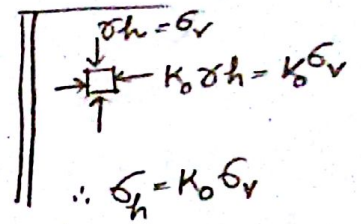 γh = σv
K₀ γh = K₀ σv
∴ σh = K₀ σv